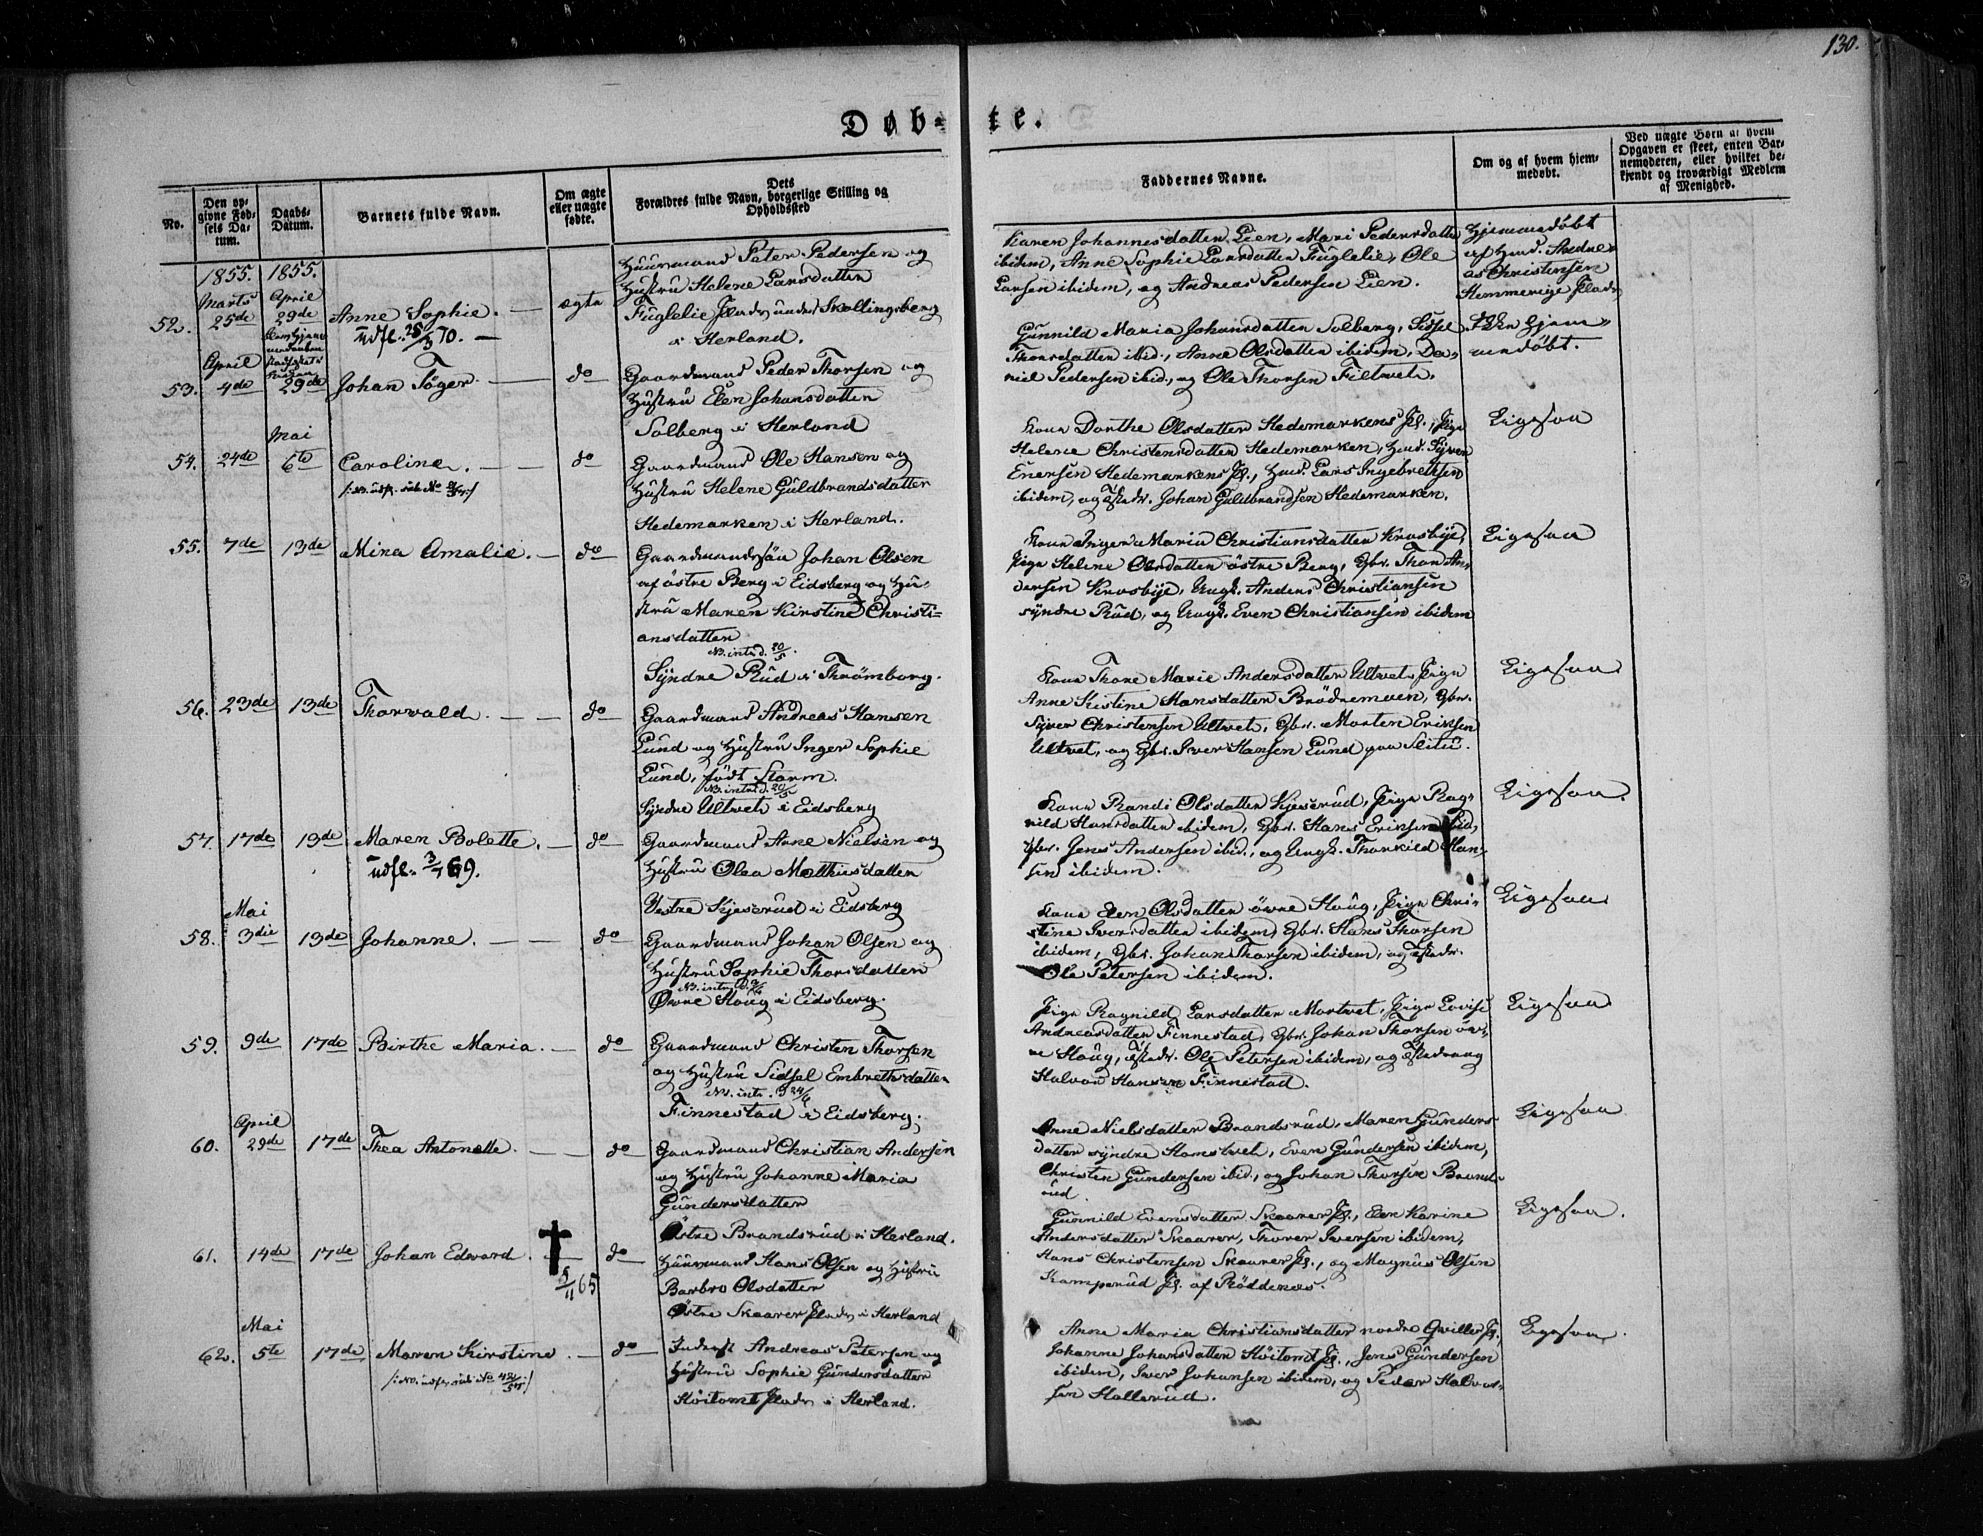 130.
Døb- te.
No.
Den op-
givne Fød-
sels Da-
tum.
Daabs-
Datum.
Barnets fulde Navn.
Om ægte
eller uægte
fødte.
Dets
Forældres fulde Navn, borgerlige Stilling og
Opholdssted
Faddernes Navne.
Om og af hvem hjem-
medøbt.
Ved uægte Børn af hvem
Opgaven er skeet, enten Bar-
nemoderen, eller hvilket be-
kjendt og troværdigt Medlem
af Menighed.
1855. 1855.
Marts April
52. 25de 29de Anne Sophie. ægte
udfl. 25/3 70.
Huusmand Peter Pedersen og
Hustru Helene Larsdatter
Fuglelie Plads under Skallingsberg
i Herland.
Karen Johannesdatter Lien, Mari Pedersdatter
ibidem, Anne Sophie Larsdatter Fuglelie, Ole
Larsen ibidem, og Andreas Pedersen Lien.
Hjemmedøbt
af Huusm. Andre-
as Christensen
Hemmereie Plads
April
53. 4de 29de Johan Töger. do
Gaardmand Peder Thorsen og
Hustru Elen Johansdatter
Solberg i Herland
Gunnild Maria Johansdatter Solberg, Sidsel
Thorsdatter ibid., Anne Olsdatter ibidem, Da-
niel Pedersen ibid., og Ole Thorsen Filtvet.
Ikke hjem-
medøbt.
Mai
54. 24de 6te Caroline. do
Gaardmand Ole Hansen og
Hustru Helene Guldbrandsdatter
Hedemarken i Herland.
Kone Dorthe Olsdatter Hedemarkens Pl., Pige
Helene Christensdatter Hedemarken, Huusm. Syver
Enersen Hedemarkens Pl., Huusm. Lars Ingebretsen
ibidem, og Johan Guldbrandsen Hedemarken.
Ligesaa
55. 7de 13de Mina Amalie. do
Gaardmandssön Johan Olsen
af östre Berg i Eidsberg og Hu-
stru Maren Kirstine Christi-
ansdatter
NB. intr. d. 20/5.
Syndre Rud i Thrömborg.
Kone Inger Maria Christiansdatter Krosbye,
Pige Helene Olsdatter östre Berg, Gbr. Thor An-
dersen Krosbye, Ungk. Anders Christiansen
syndre Rud, og Ungk. Even Christiansen ibidem
Ligesaa
56. 23de 13de Thorvald. do
Gaardmand Andreas Hansen
Lund og Hustru Inger Sophie
Lund, födt Storm.
NB. intr. d. 20/5
Syndre Ultvet i Eidsberg
Kone Thore Marie Andersdatter Ultvet, Pige
Anne Kistine Hansdatter Brödremoen, Gbr.
Syver Christensen Ultvet, Gbr. Morten Eriksen
Ultvet, og Gbr. Iver Hansen Lund paa Slitu.
Ligesaa
57. 17de 13de Maren Bolette. do
udfl. 3/7 69.
Gaardmand Arne Nielsen og
Hustru Olea Matthisdatter
Vestre Kjeserud i Eidsberg
Kone Randi Olsdatter Kjeserud, Pige Rag-
nild Hansdatter ibidem, Gbr. Hans Eriksen ibid,
Gbr. Jens Andersen ibid., og Ungk. Thorkild Han-
sen ibidem.
Ligesaa.
Mai
58. 3die 13de Johanne. do
Gaardmand Johan Olsen og
Hustru Sophie Thorsdatter
Övre Haug i Eidsberg.
Kone Elen Olsdatter övre Haug, Pige Chri-
stine Iversdatter ibidem, Gbr. Hans Thorsen
ibidem, Gbr. Johan Thorsen ibidem, og
Ole Petersen ibidem.
Ligesaa
59. 9de 17de Birthe Maria. do
Gaardmand Christen Thorsen
og Hustru Sidsel Embretsdatter
NB. intr. d. 24/6
Finnestad i Eidsberg.
Pige Ragnild Larsdatter Mortvet, Pige Lovise
Andreasdatter Finnestad, Gbr. Johan Thorsen öv-
re Haug, Ole Petersen ibidem, og
Halvor Hansen Finnestad.
Ligesaa
April
60. 29de 17de Thea Antonette. do
Gaardmand Christian Andersen
og Hustru Johanne Maria
Gundersdatter
Östre Brandsrud i Herland.
Anne Nielsdatter Brandsrud, Maren Gunders-
datter syndre Hamstvet, Even Gundersen ibidem,
Christen Gundersen ibid., og Johan Thorsen Brands-
rud.
Ligesaa
61. 14de 17de Johan Edvard. do
5/11 65
Huusmand Hans Olsen og Hustru
Barbro Olsdatter
Östre Skaarer Plads i Herland
Gunnild Evensdatter Skaarer Pl., Elen Karine
Andersdatter Skaarer, Thorer Iversen ibidem,
Hans Christensen Skaarer Pl., og Magnus Olsen
Kamperud Pl. af Röddenæs.
Ligesaa.
Mai
62. 5te 17de Maren Kirstine do
Inderst Andreas Petersen og
Hustru Sophie Gundersdatter
Höitomt Plads i Herland.
Anne Maria Christiansdatter nordre Qviller Pl.
Johanne Johansdatter Höitomt Pl., Jens Gundersen
ibidem, Iver Johansen ibidem, og Peder Halvor-
sen Hallerud.
Ligesaa.